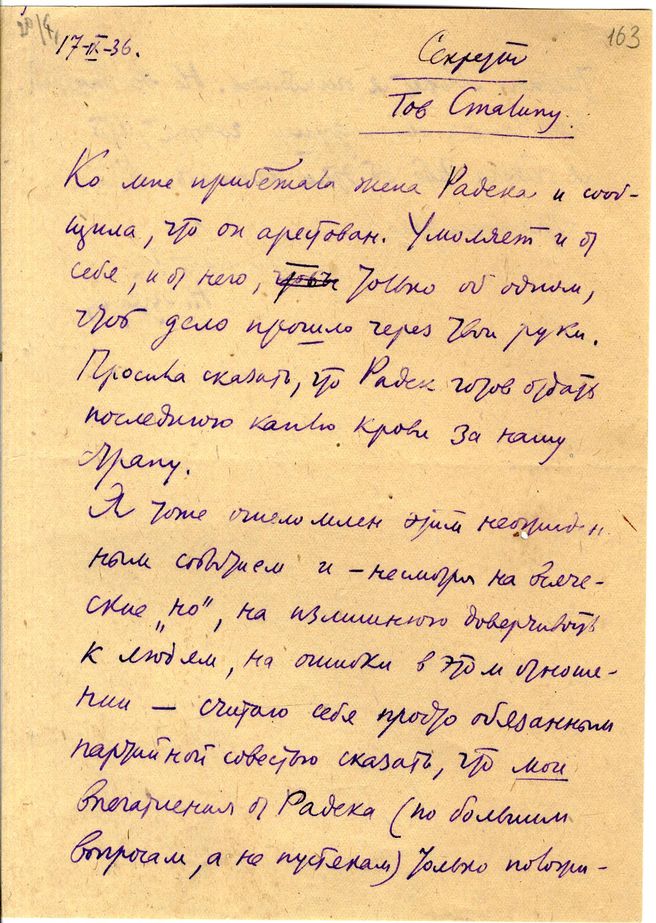 163
17-IX-36.
Секретно
Тов Сталину.
Ко мне прибежала жена Радека и сооб-
щила, что он арестован. Умоляет и от
себе, и от него, чтобы только об одном,
чтоб дело прошло через твои руки.
Просила сказать, что Радек готов отдать
последнюю каплю крови за нашу
страну.
Я тоже ошеломлен этим неожидан
ным событием и – несмотря на всяче-
ские „но", на излишнюю доверчивость
к людям, на ошибки в этом отноше-
нии — считаю себя просто обязанным
партийной совестью сказать, что мои
впечатления от Радека (по большим
вопросам, а не пустякам) только положи-